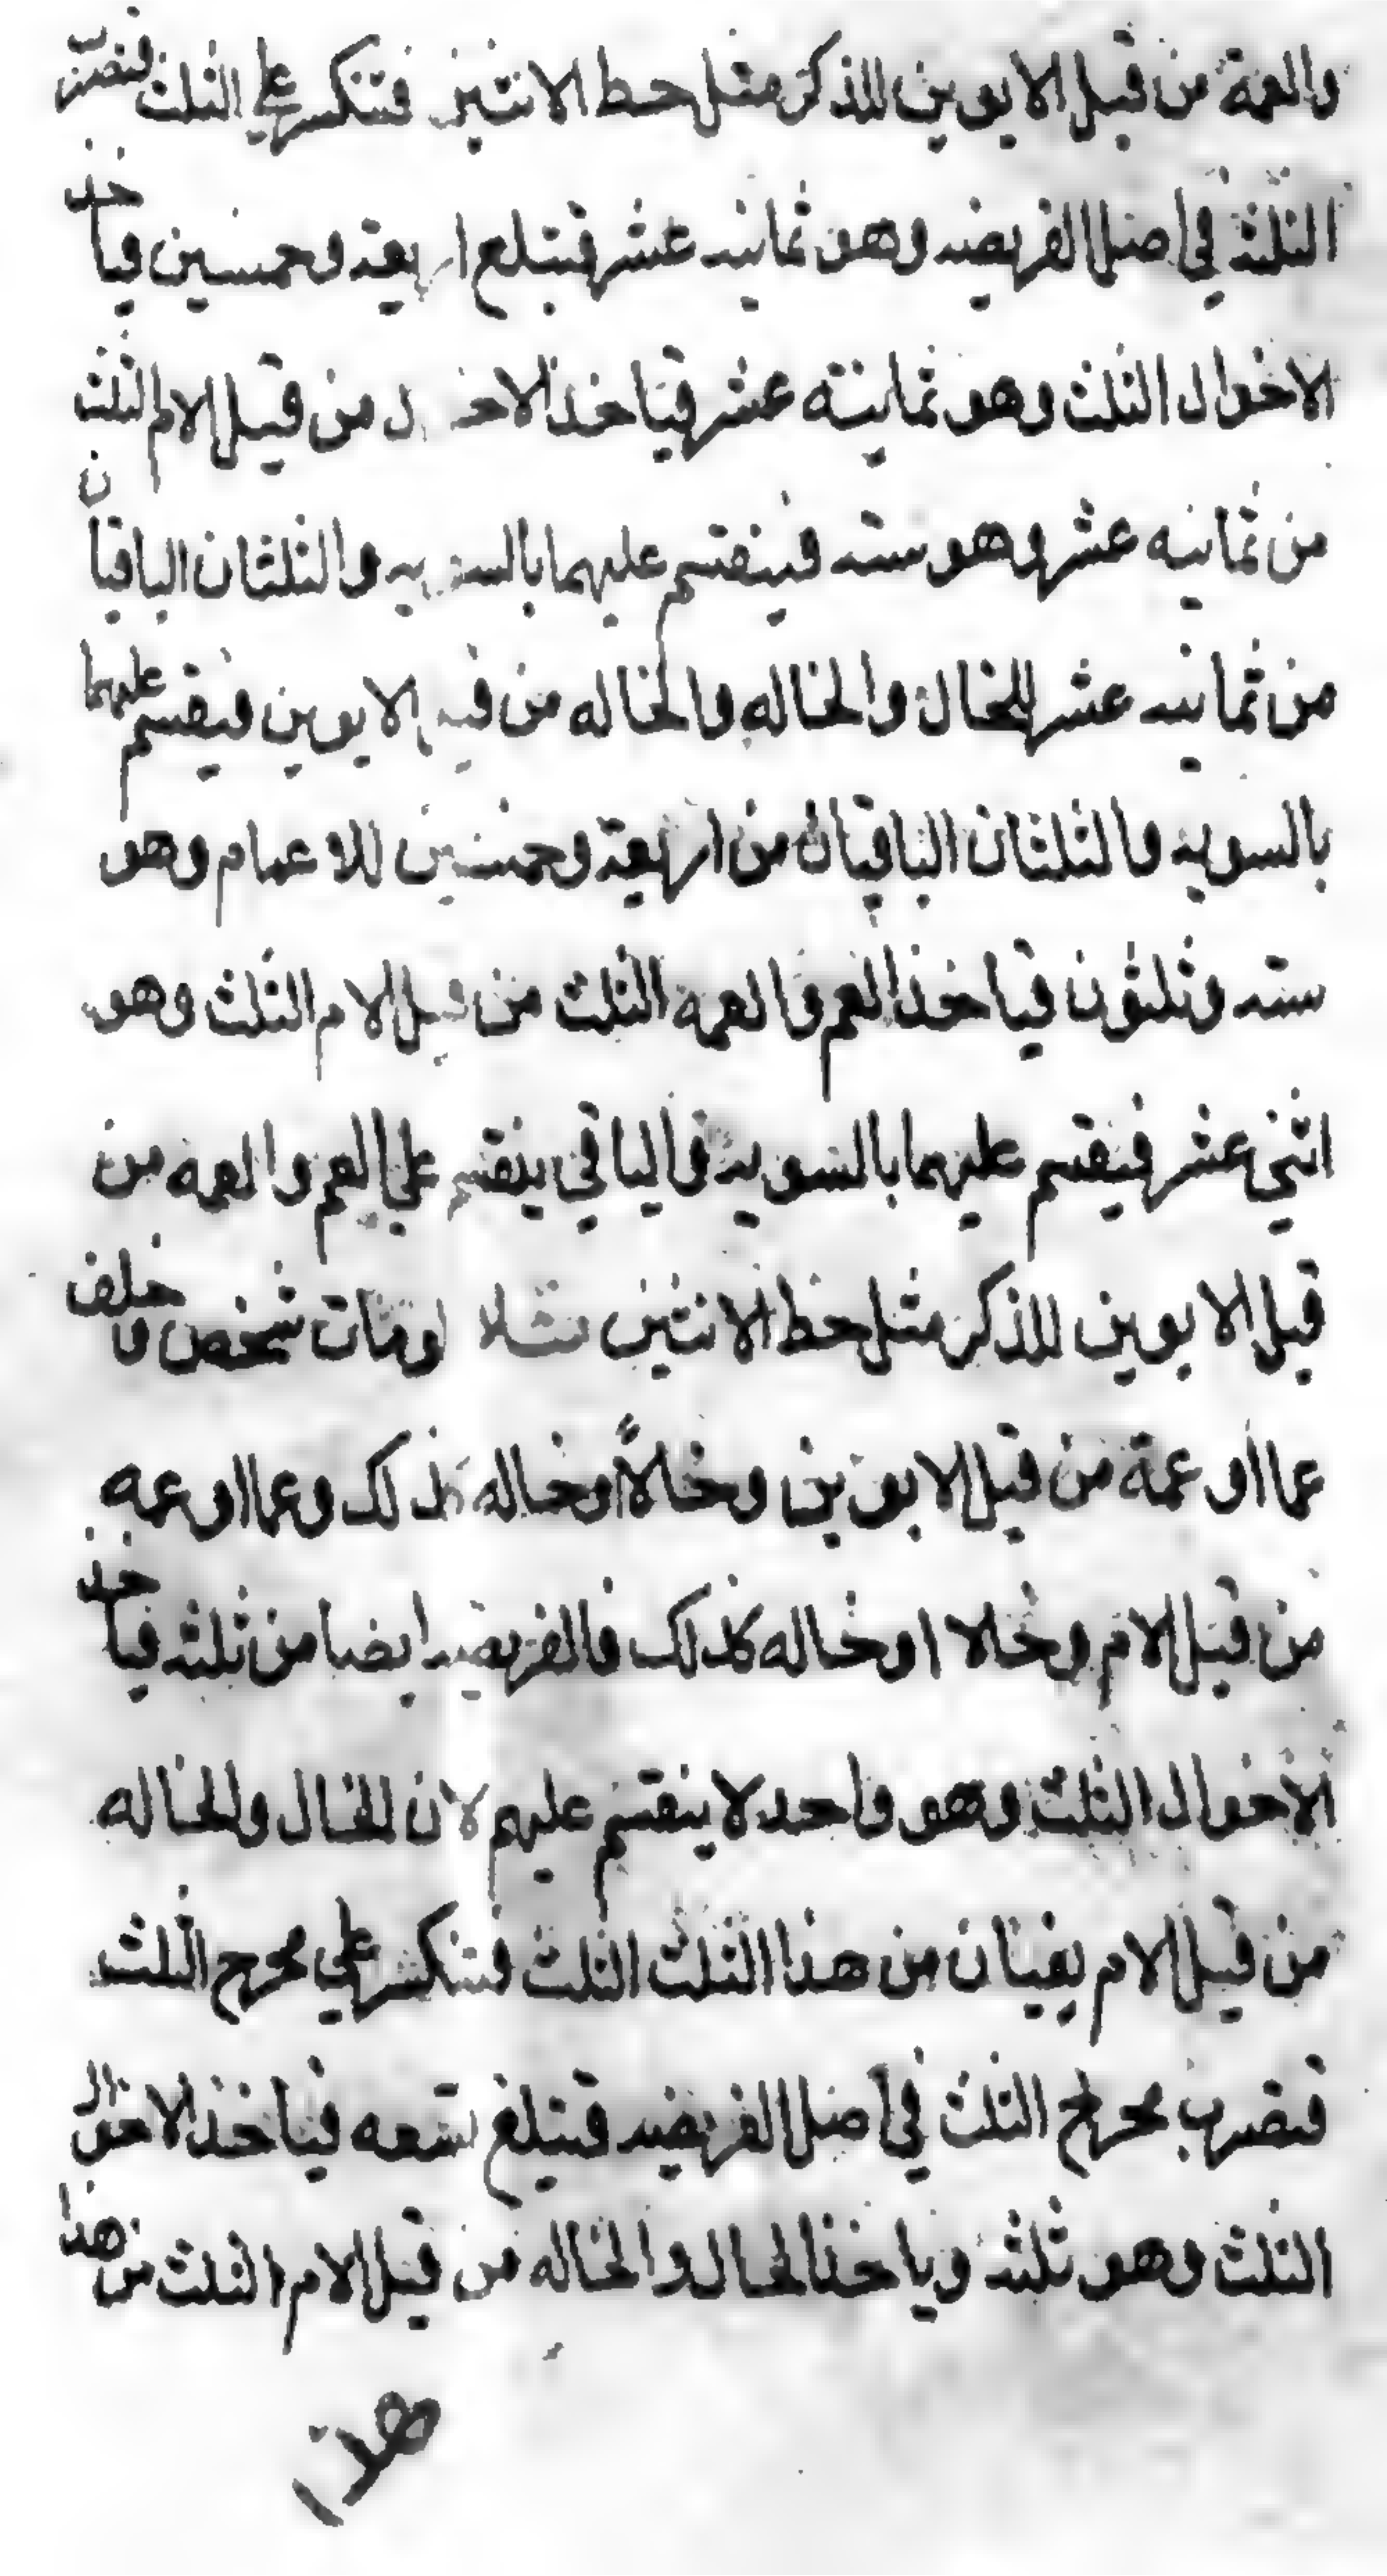 والعمة من قبل الابوين للذكر مثل حظ الانثيين فتنكسر علي الثلث فتضرب
الثلثه في اصل الفريضه وهو ثمانيه عشر فتبلغ اربعة وخمسين فياخذ
الاخوال الثلث وهو ثمانيته عشر فياخذ الاخـ ـد من قبل الام الثلث
من ثمانيه عشر وهو سته فينقسم عليهما بالسويه والثلثان الباقيان
من ثمانيه عشر للخال والخاله والخاله من قبل الابوين فيقسم عليهما
بالسويه والثلثان الباقيان من اربعة وخمسين للاعمام وهو
سته وثلثون فياخذ العم والعمه الثلث من قبل الام الثلث وهو
اثني عشر فيقسم عليهما بالسويه والباقي ينقسم علي العم والعمه من
قبل الابوين للذكر مثل حظ الانثيين مثلا لو مات شخص وخلف
عما او عمة من قبل الابوين وخالاً او خاله كذلك وعما او عمه
من قبل الام وخالا او خاله كذلك فالفريضه ايضا من ثلثه فياخذ
الاخوال الثلث وهو واحد لا ينقسم عليهم لان للخال وللخاله
من قبل الام يفينان من هذا الثلث الثلث فتنكسر علي مخرج الثلث
فتضرب مخرج الثلث في اصل الفريضه فتبلغ تسعه فياخذ الاخوال
الثلث وهو ثلثه وياخذ الخال والخاله من قبل الام الثلث من هذا
هذا